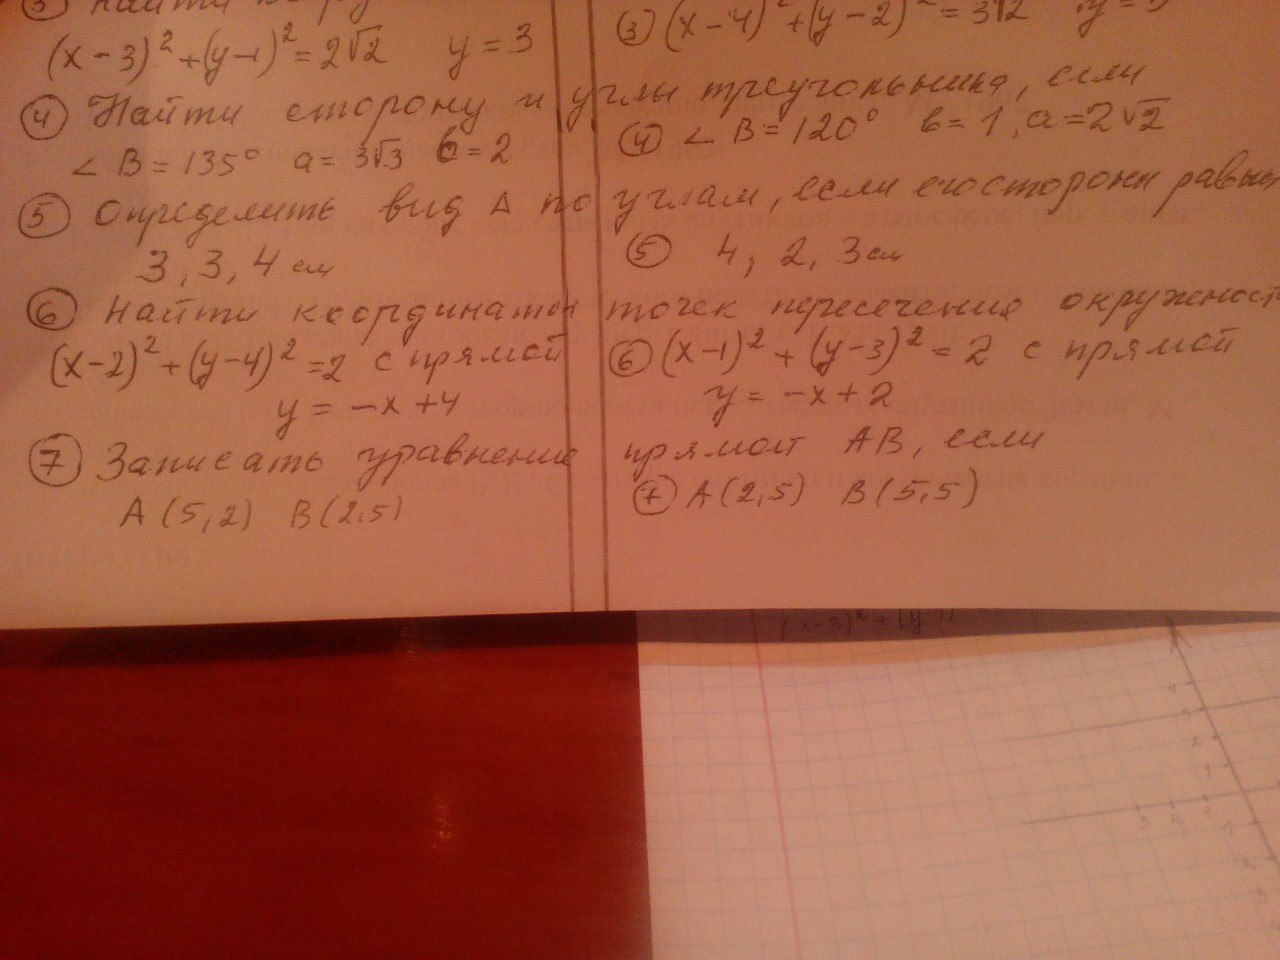 ③ Найти
(x-3)² + (y-1)² = 2√2 y = 3
③ (x-4)² + (y-2)² = 3√2
④ Найти сторону и углы треугольника, если
∠B = 135° a = 3√3 b = 2
④ ∠B = 120° b = 1, a = 2√2
⑤ Определить вид Δ по углам, если его стороны равны
3, 3, 4 см
⑤ 4, 2, 3 см
⑥ Найти координаты точек пересечения окружност
(x-2)² + (y-4)² = 2 с прямой
y = -x + 4
⑥ (x-1)² + (y-3)² = 2 с прямой
y = -x + 2
⑦ Записать уравнение прямой AB, если
A (5,2) B (2,5)
⑦ A (2,5) B (5,5)
(x-3)² + (y